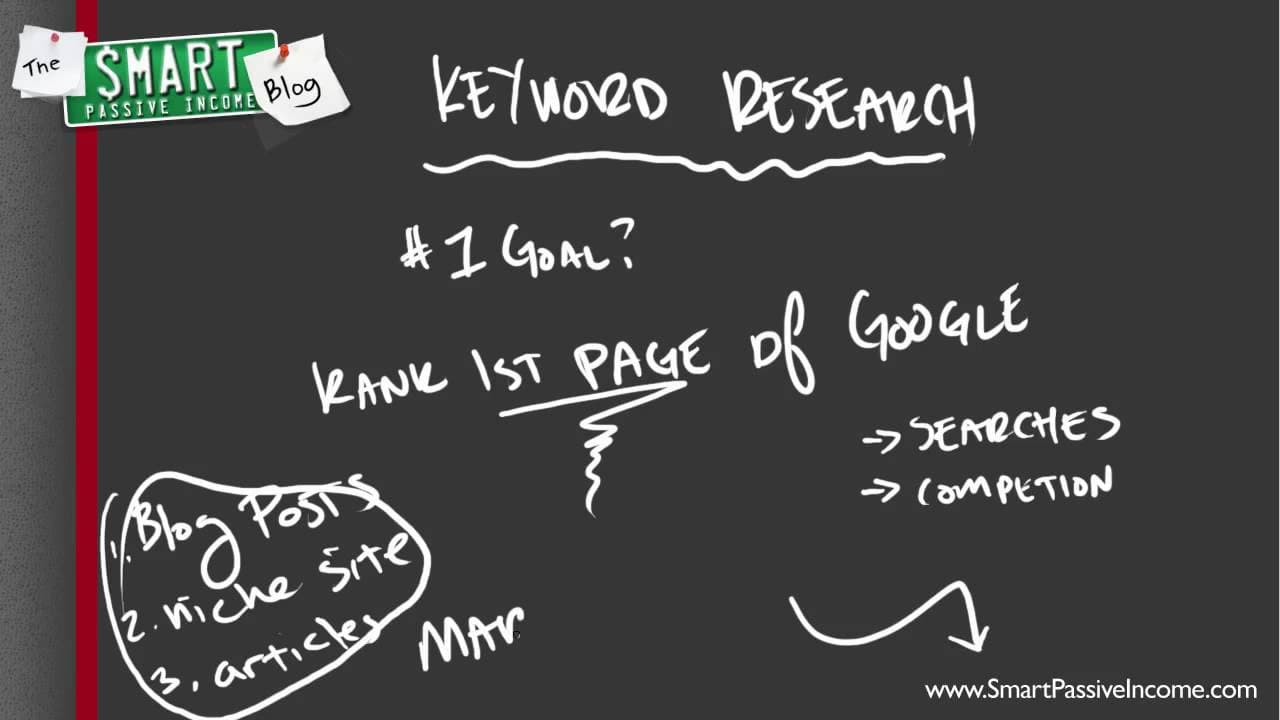 The $MART Blog
PASSIVE INCOME
KEYWORD RESEARCH
#1 GOAL?
RANK 1ST PAGE Of GOOGLE
→ SEARCHES
→ COMPETION
1. Blog Posts
2. niche site
3. articles
MAR
www.SmartPassiveIncome.com